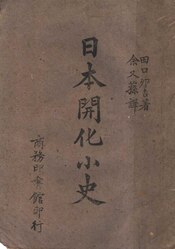 田口卯吉著
余又蓀譯
日本開化小史
商務印書館印行